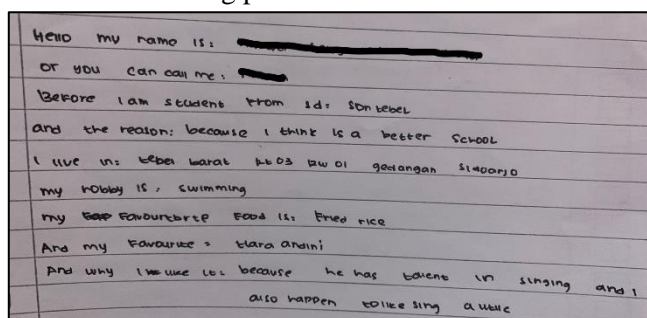 Hello my name is:
or you can call me:
Before I am student from sd: Sontebel
and the reason: because I think is a better school
I live in: tebel barat Rt 03 RW 01 gedangan Sidoarjo
my hobby is, swimming
my Favourborte Food is: Fried rice
And my Favourite = tiara andini
And why I like it: because he has talent in singing and I
also happen to like sing a little